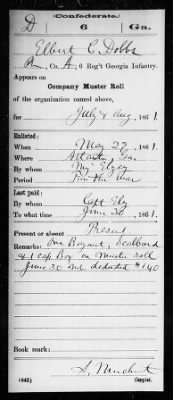 (Confederate.)
D 6 Ga.
Elbert C. Dobbs
Co. A, 6 Reg't Georgia Infantry.
Appears on
Company Muster Roll
of the organization named above,
for July & Aug, 1861.
Enlisted:
When May 27, 1861.
Where Atlanta, Ga.
By whom
Period For the War
Last paid:
By whom Capt
To what time June 30, 1861.
Present or absent Present
Remarks: One Bayonet, Scabbard
& 1 cap Box on Muster roll
June 30 deducted $1.40
Book mark:
(642)
Copyist.